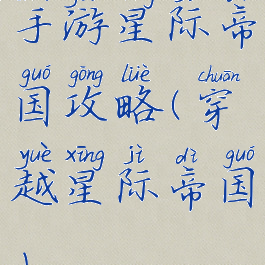 手游星际帝
guó gōng lüè chuān
国攻略(穿
yuè xīng jì dì guó
越星际帝国
)